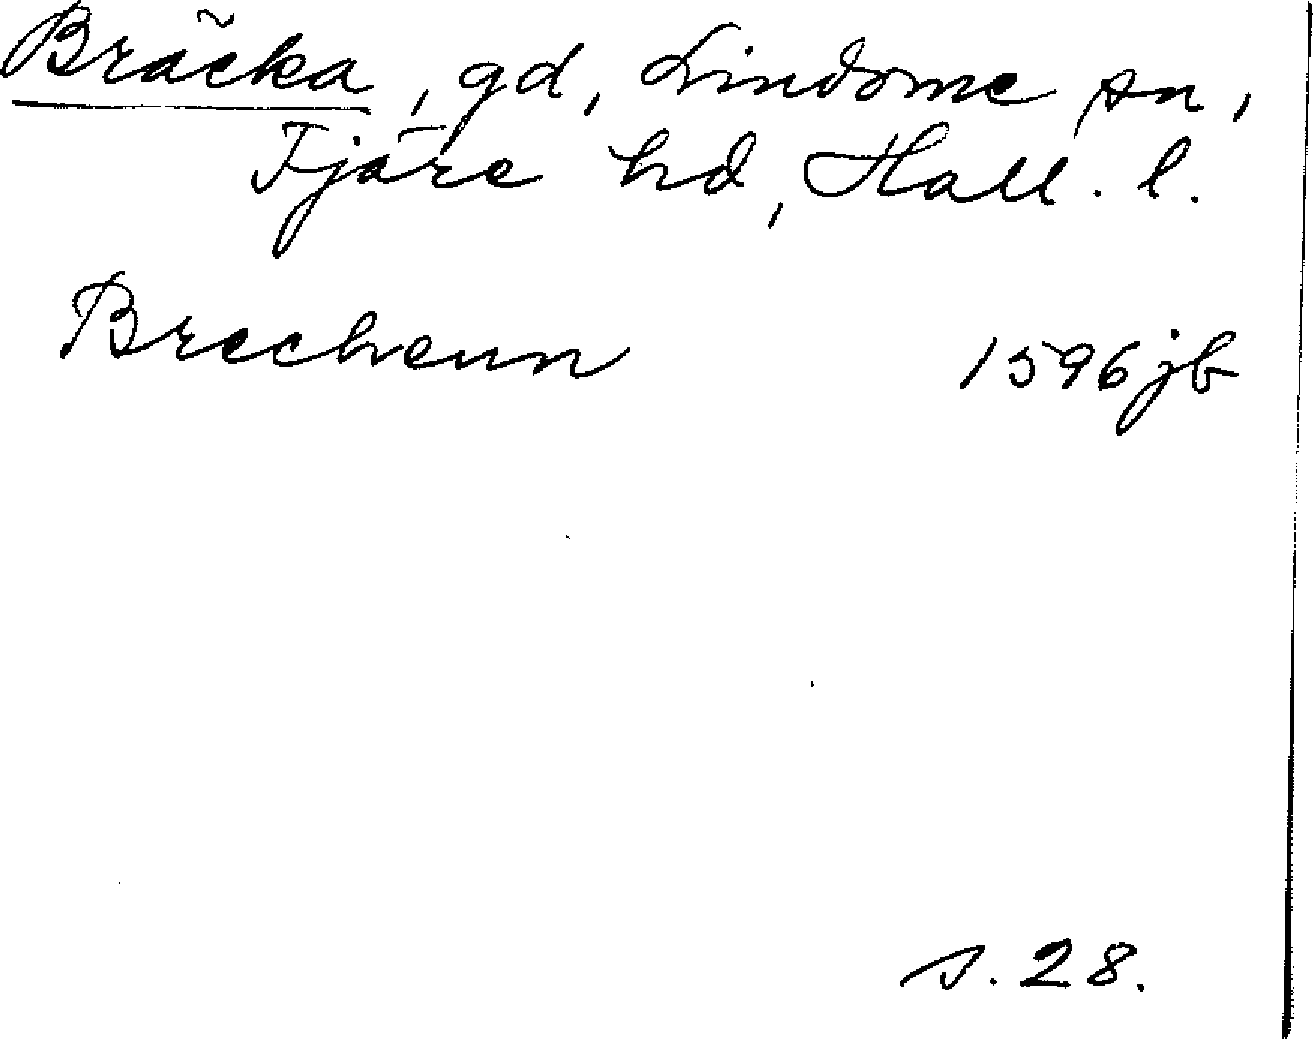 Bräcka, gd, Lindome sn,
Fjäre hd, Hall. l.
Brecheun 1596 jb
s. 28.